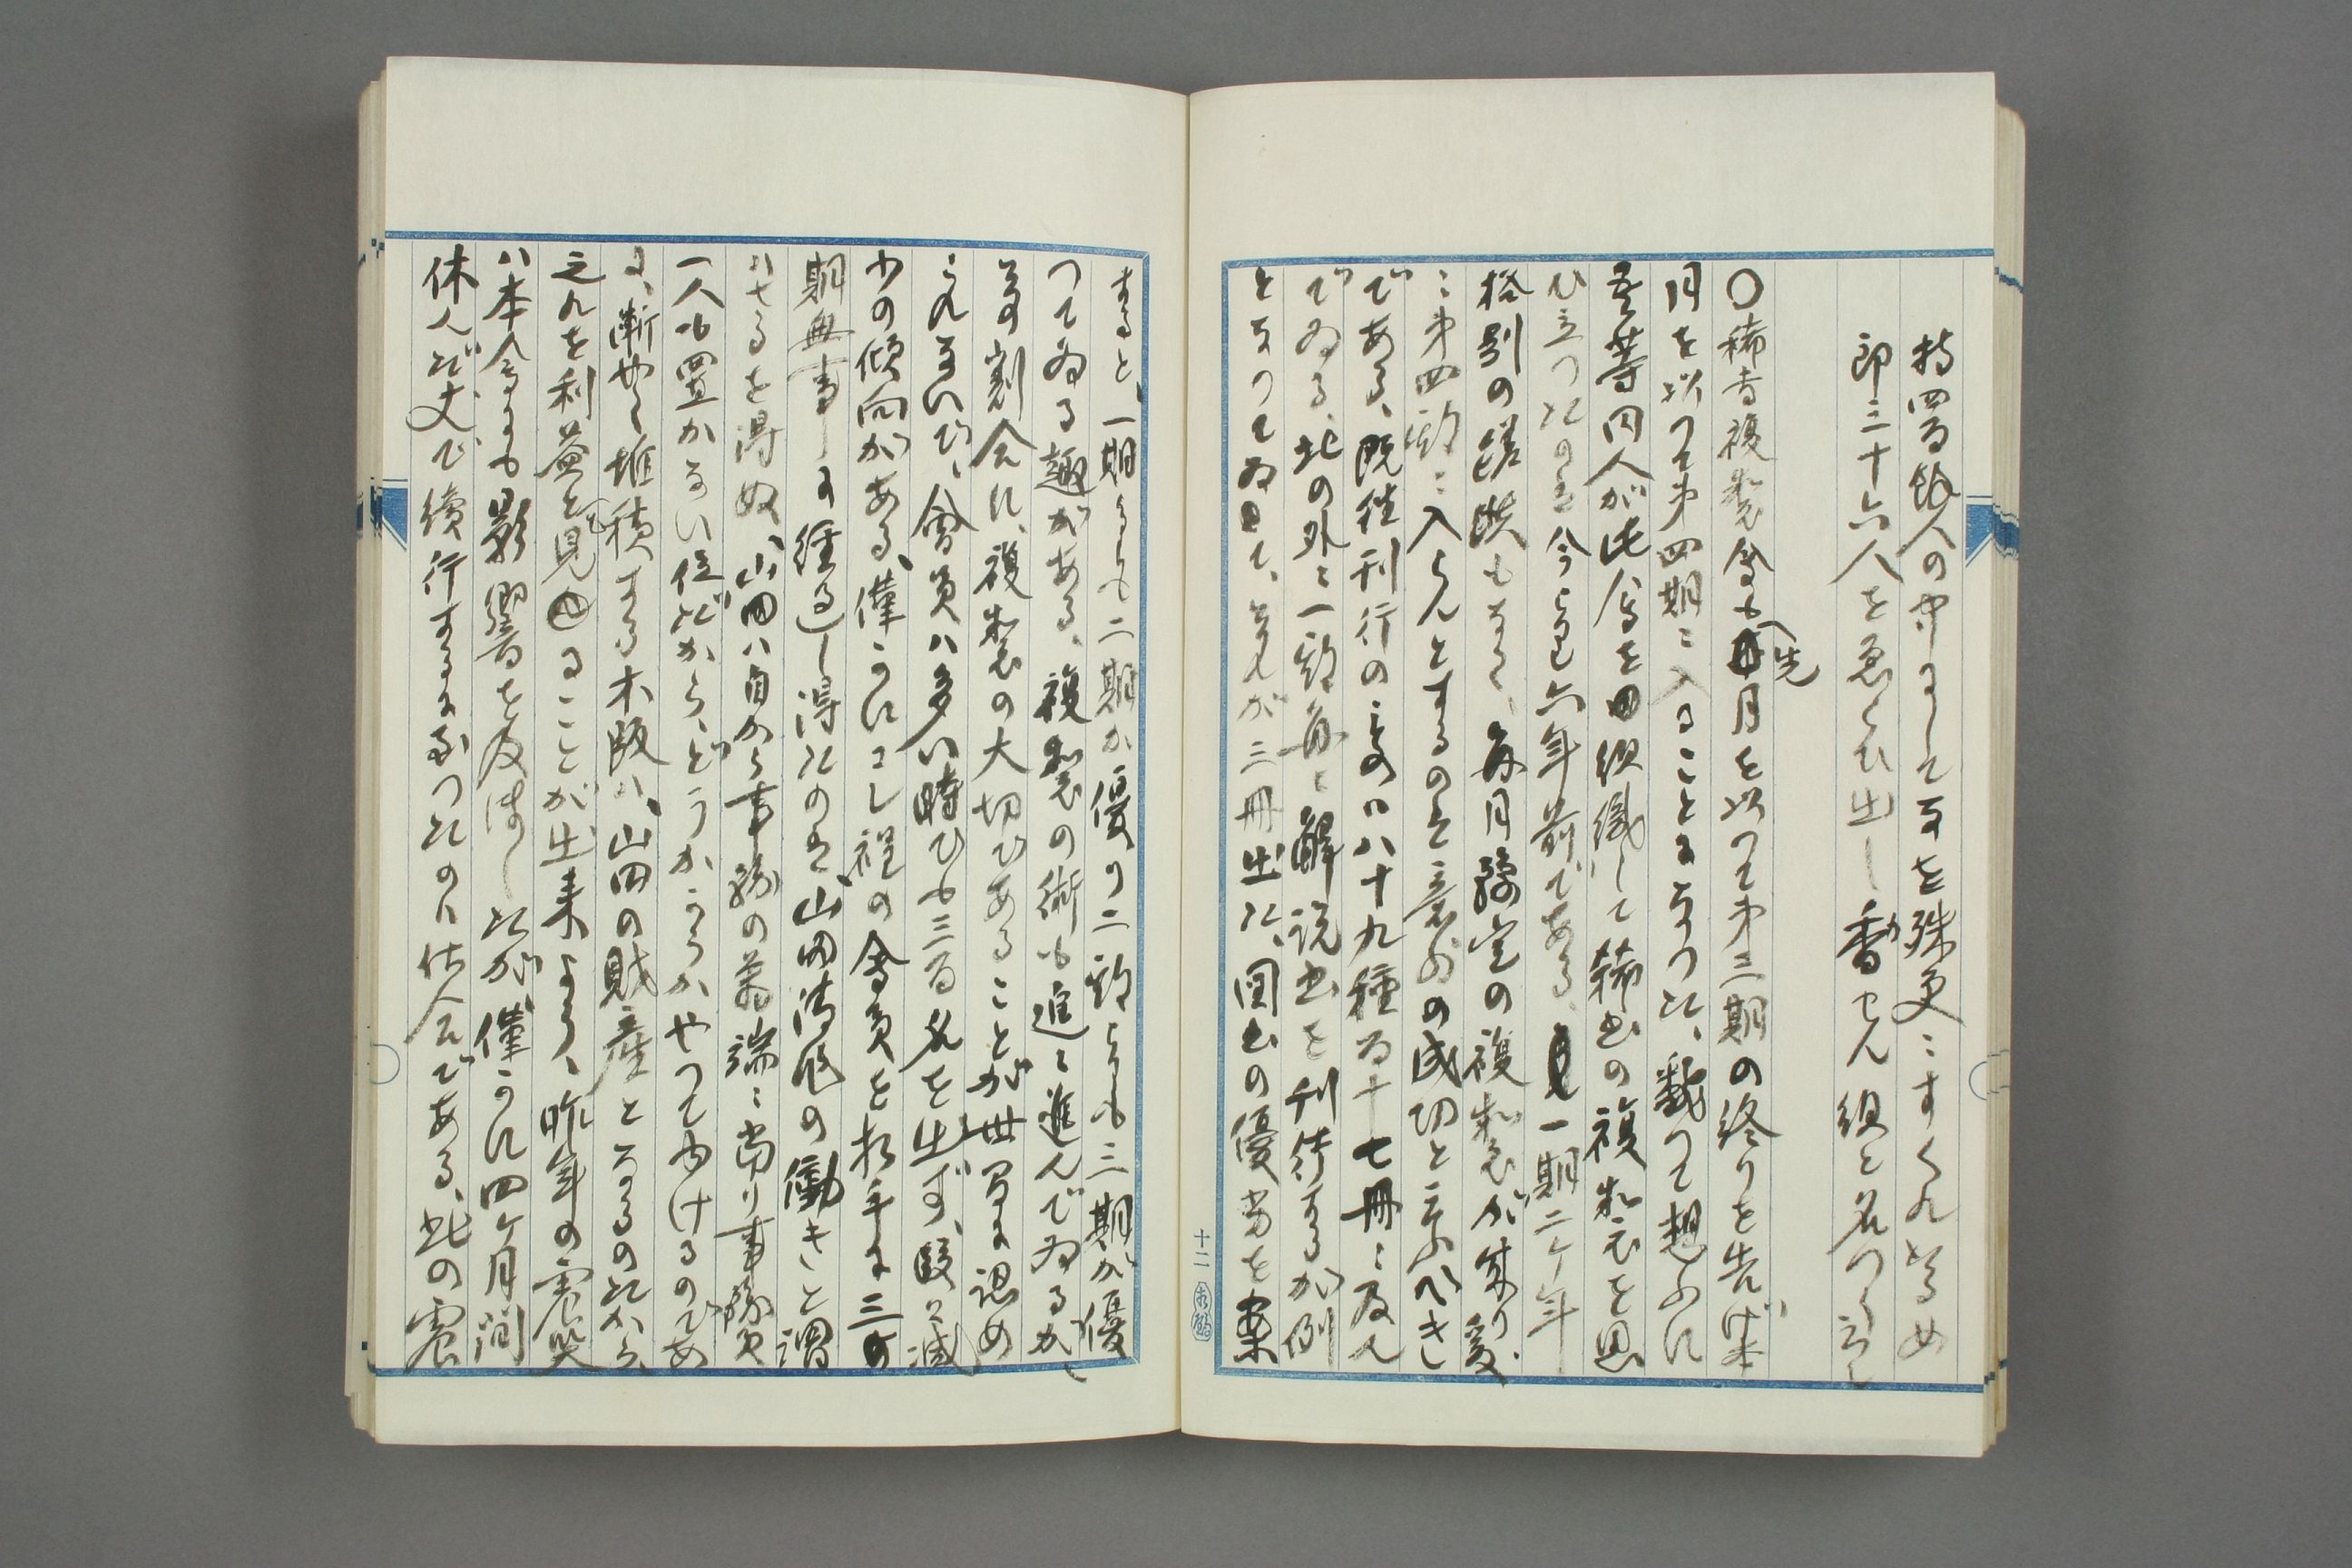 持四百餘人の中にして更を殊更ニすくれたるめ
郎三十六人を急くひ出し香せん組と名つくると
〇稀書複製会も先月を以つて第三期の終りを告げ本
月を以つて第四期ニ入ることになつた、数つて想ふに
吾等同人が此会を組織して稀書の複製を思
ひ立つたのは今より六年前である、一期二ケ年
格別の蹉跌もなく、毎月豫定の複製が成り、爰
ニ第四期ニ入らんとするのは意外の成功と言ふべき
である、既往刊行のものハ八十九種百十七冊ニ及ん
でゐる、此の外ニ一期毎ニ解説書を刊行するが例
となつてゐて、それが三冊出た、回書の優劣を案
ずると、一期よりも二期が優り二期よりも三期が優
つてゐる趣がある、複製の術も進ミ進んでゐるが
その割合に、複製の大切であることが世間に認め
られないで、會員ハ多い時でも三百名を出ず、段々減
少の傾向がある、僅かにコレ程の會員を相手に三ケ
期無事に経過し得たのは山田清作の働きと謂
はせるを得ぬ、山田ハ自から事務の萬端ニ当り事務員
一人も置かない位だから、どうかかうかやつてゆけるのであ
る、漸やく堆積する木版ハ、山田の財産となるのだから
之れを利益と見ることが出来よう、昨年の震災
ハ本会にも影響を及ぼしたが、僅かに四ケ月間
休んだ丈で續行するに至つたのハ仕合である、此の震
十二